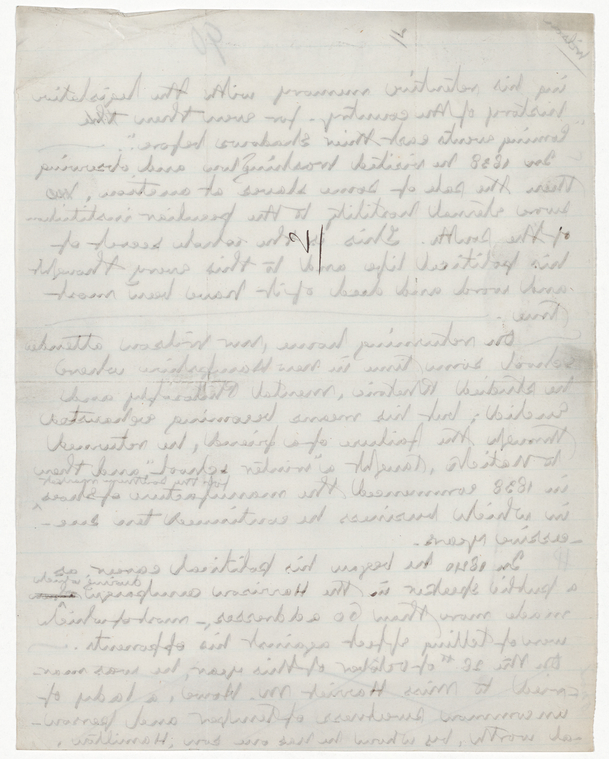 4
90
Wilson
ing his retentive memory with the legislative
history of the country - for even then the
"coming events cast their shadows before".
In 1838 he visited Washington and observing
then the sale of some slaves at auction, &c
swore eternal hostility to the peculiar institution
of the South. This is the whole secret of
his political life and to this every thought
and word and deed of it have been most
true.
12
On returning home, Mr Wilson attended
school some time in New Hampshire where
he studied Rhetoric, mental Philosophy and
Euclid; but his means becoming exhausted
through the failure of a friend, he returned
to Natick, taught a "winter school" and then
for the southern market
in 1838 commenced the manufacture of shoes
in which business he continued ten suc-
cessive years.
In 1840 he began his political career as
a public speaker in the Harrison campaign
during which
made more than 60 addresses, - most of which
were of telling effect against his opponents.
On the 28th of October of this year, he was mar-
ried to Miss Harriet M. Howe, a lady of
uncommon sweetness of temper and person-
al worth, by whom he has one son, Hamilton,